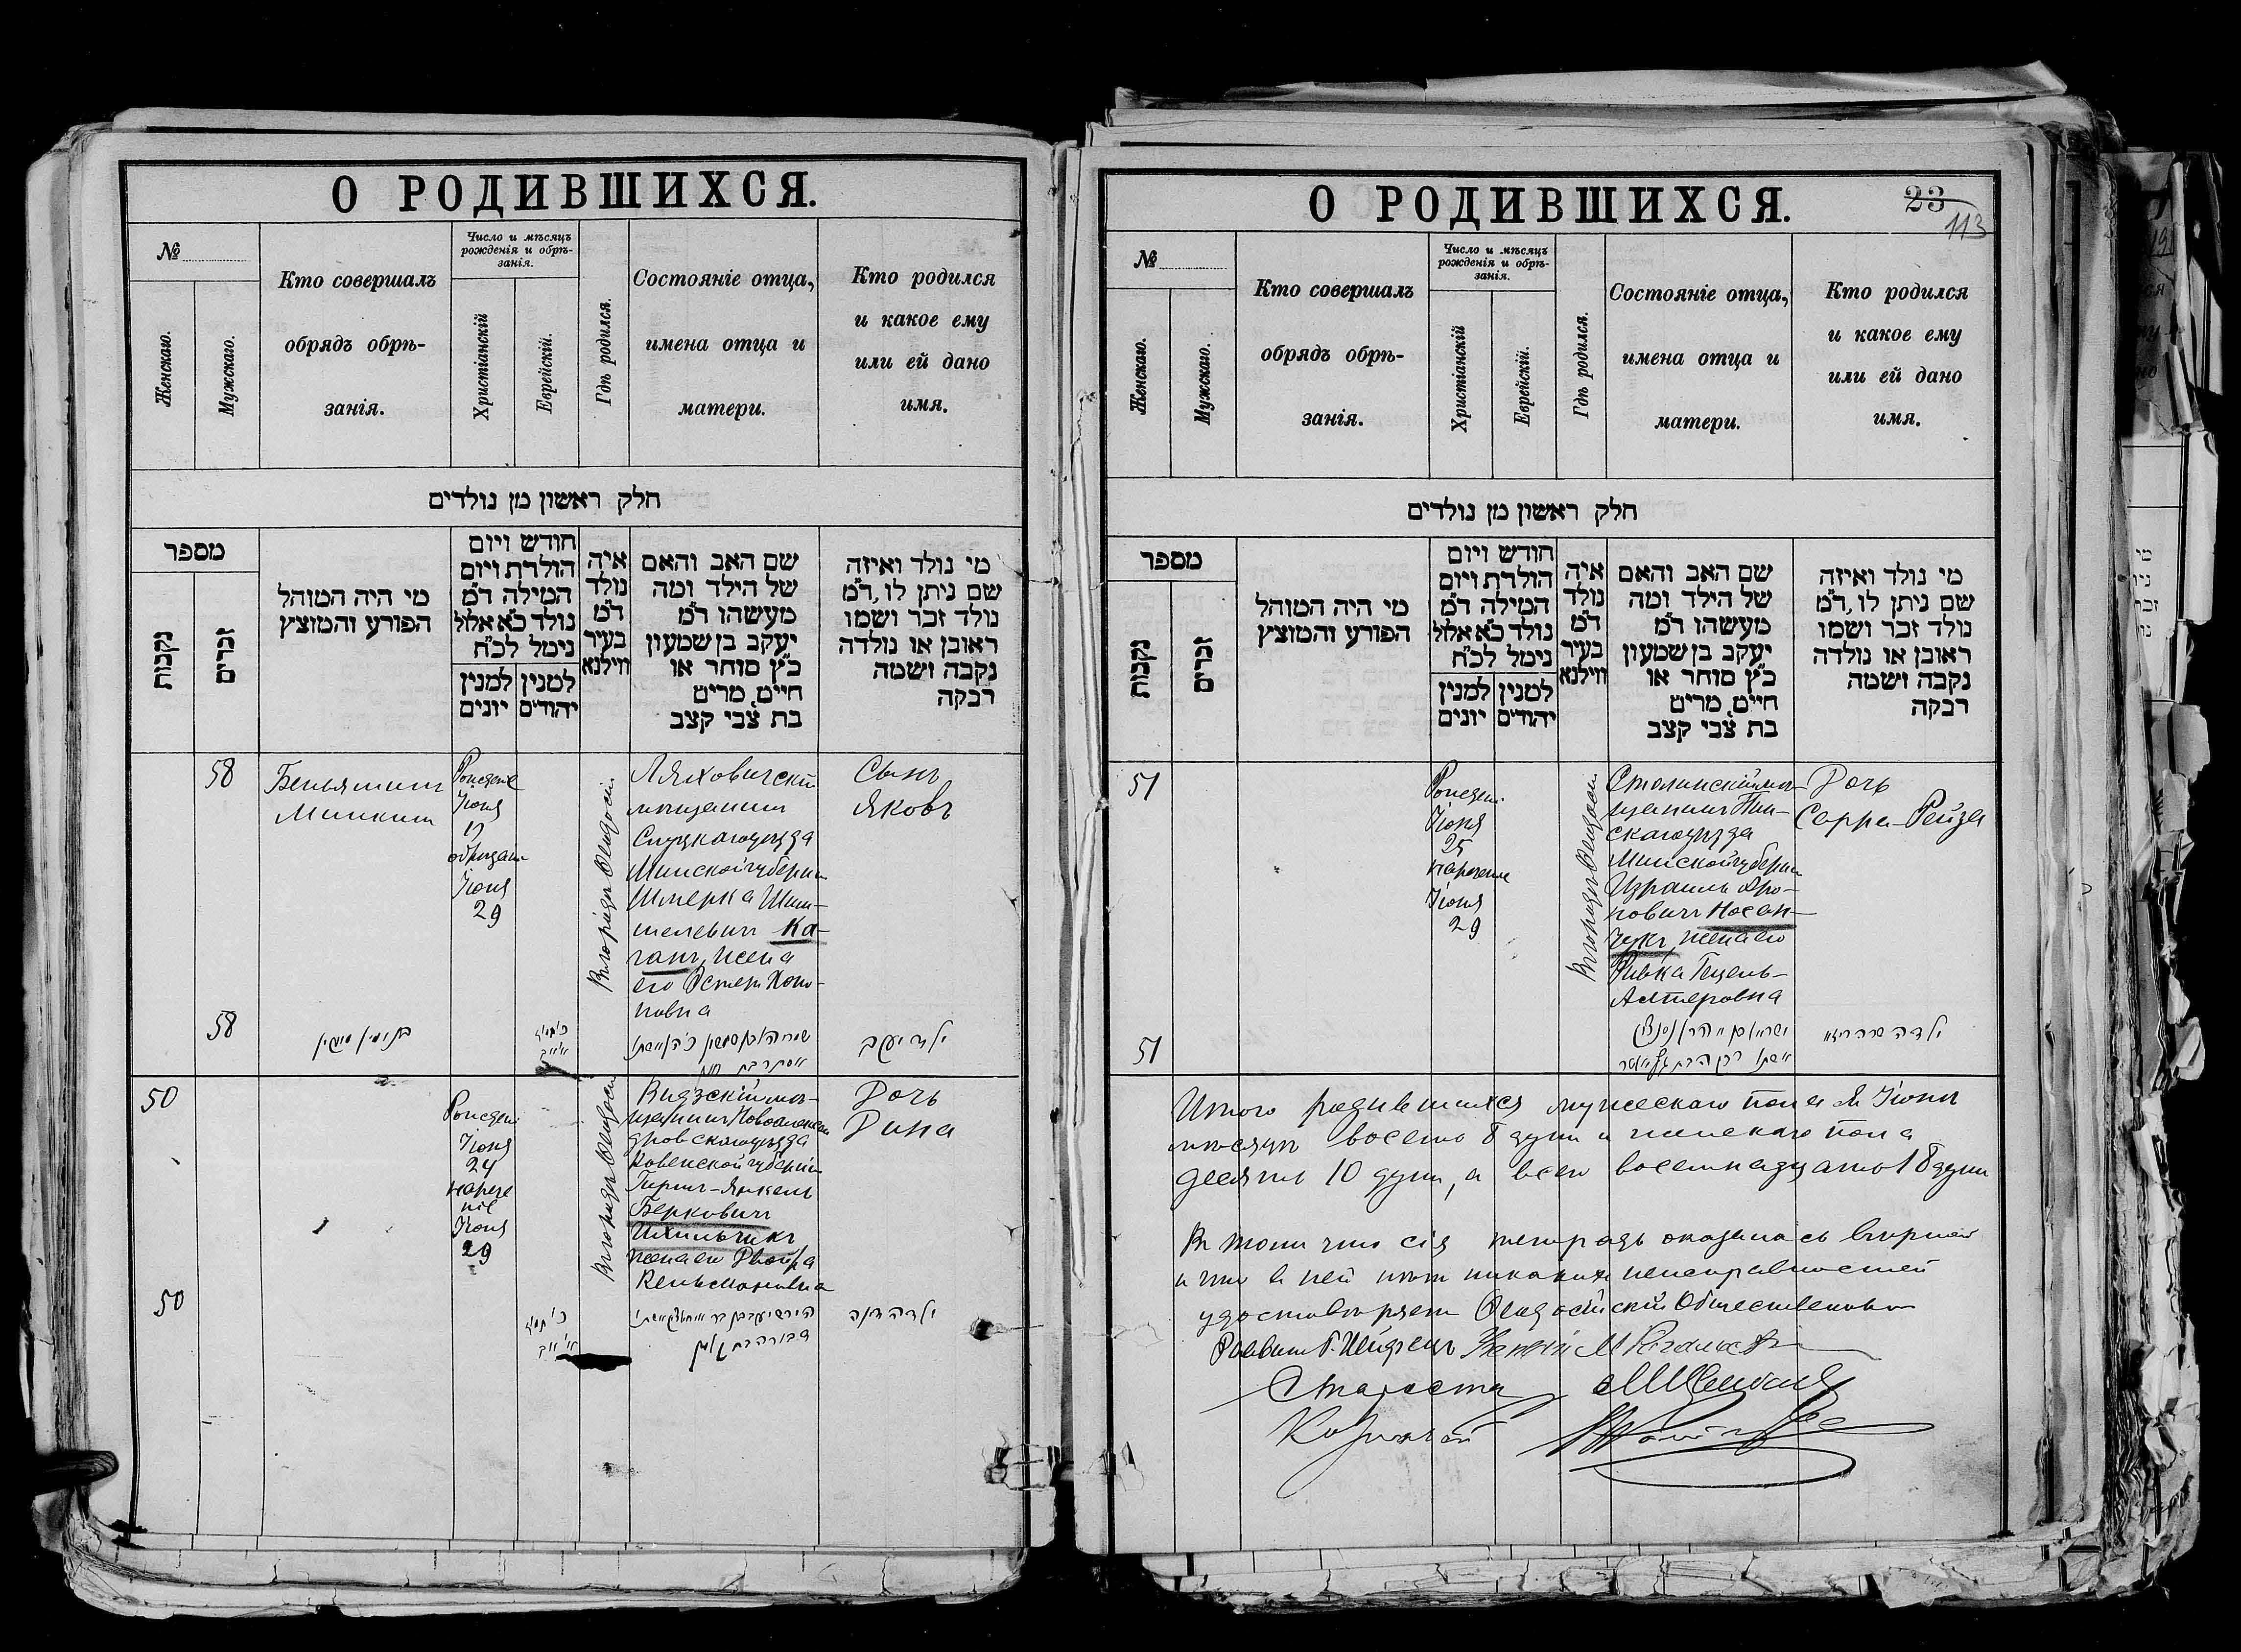 О РОДИВШИХСЯ.
№
Женскаго.
Мужскаго.
Кто совершалъ
обрядъ обрѣ-
занія.
Число и мѣсяцъ
рожденія и обрѣ-
занія.
Христіанскій
Еврейскій.
Гдѣ родился.
Состояніе отца,
имена отца и
матери.
Кто родился
и какое ему
или ей дано
имя.
חלק ראשון מן נולדים
מספר
נקבות
זכרים
מי היה המוהל
הפורע והמוצץ
חודש ויום
הולדת ויום
המילה ד״מ
נולד כ״א אלול
נימל לכ״ח
למנין
יונים
למנין
יהודים
איה
נולד
ד״מ
בעיר
ווילנא
שם האב והאם
של הילד ומה
מעשהו ד״מ
יעקב בן שמעון
כ״ץ סוחר או
חיים, מרים
בת צבי קצב
מי נולד ואיזה
שם ניתן לו, ד״מ
נולד זכר ושמו
ראובן או נולדה
נקבה ושמה
רבקה
58
Беньяминъ
Минкинъ
Іюня
Іюня
29
Въ городѣ Ѳеодосіи
Ляховичскій
мѣщанинъ
Слуцкаго уѣзда
Минской губерніи
Шмерка Шим-
шелевичъ Ка-
ганъ, жена
его Эстеръ Хоно-
новна
Сынъ
Яковъ
58
ילד יעקב
50
Іюня
24
нарече
ніе
Іюня
29
Въ городѣ Ѳеодосіи
Видзскій мѣ-
щанинъ Новоалексан
дровскаго уѣзда
Ковенской губерніи
Гиршъ-Янкель
Берковичъ
Ихильчикъ
жена его Двойра
Кельмановна
Дочь
Дина
50
ילדה דינה
О РОДИВШИХСЯ.
23
113
№
Женскаго.
Мужскаго.
Кто совершалъ
обрядъ обрѣ-
занія.
Число и мѣсяцъ
рожденія и обрѣ-
занія.
Христіанскій
Еврейскій.
Гдѣ родился.
Состояніе отца,
имена отца и
матери.
Кто родился
и какое ему
или ей дано
имя.
חלק ראשון מן נולדים
מספר
נקבות
זכרים
מי היה המוהל
הפורע והמוצץ
חודש ויום
הולדת ויום
המילה ד״מ
נולד כ״א אלול
נימל לכ״ח
למנין
יונים
למנין
יהודים
איה
נולד
ד״מ
בעיר
ווילנא
שם האב והאם
של הילד ומה
מעשהו ד״מ
יעקב בן שמעון
כ״ץ סוחר או
חיים, מרים
בת צבי קצב
מי נולד ואיזה
שם ניתן לו, ד״מ
נולד זכר ושמו
ראובן או נולדה
נקבה ושמה
רבקה
51
Іюня
25
нареченіе
Іюня
29
Въ городѣ Ѳеодосіи
Столинскій мѣ-
щанинъ Пин-
скаго уѣзда
Минской губерніи
Израиль Аро-
новичъ Носан-
чукъ, жена его
Ривка Гецель-
Алтеровна
Дочь
Сарра-Рейзя
51
Итого родившихся мужескаго пола въ Іюнѣ
мѣсяцѣ восемь 8 душъ и женскаго пола
десять 10 душъ, а всего восемнадцать 18 душъ
Въ томъ что сія тетрадь оказалась вѣрной
и что въ ней нѣтъ никакихъ неисправностей
удостовѣряетъ Ѳеодосійскій Общественный
Раввинъ
Староста
Казначей